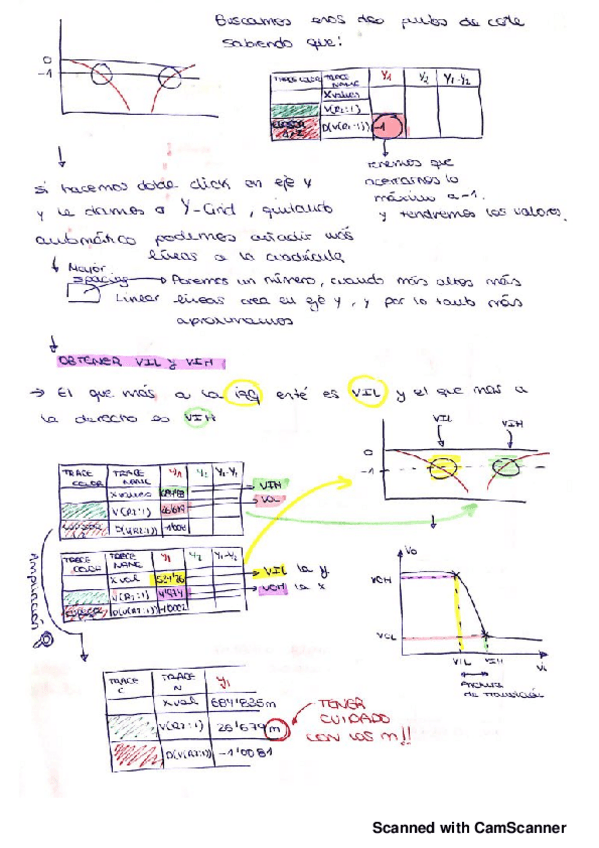 Buscamos esos dos puntos de corte
sabiendo que:
0
-1
TRACE COLOR TRACE NAME Y1 Y2 Y1-Y2
X values
V(R2:1)
CURSOR 1,2 D(V(R2:1)) -1
tenemos que
acercarnos lo
máximo a -1.
y tendremos los valores.
Si hacemos doble click en eje Y
y le damos a Y-Grid, quitando
automático podemos añadir más
líneas a la cuadrícula
Major
spacing
Ponemos un número, cuando más altos más
Linear líneas crea en eje y, y por lo tanto más
aproximamos
OBTENER VIL y VIH
→ El que más a la izq esté es VIL y el que más a
la derecha es VIH
VIL
VIH
0
-1
TRACE COLOR TRACE NAME Y1 Y2 Y1-Y2
X values → VIH
V(R2:1) → VOL
D(V(R2:1))
TRACE COLOR TRACE NAME Y1 Y2 Y1-Y2
X val → VIL la y
V(R2:1) → VOH la x
D(V(R2:1)) -1'0002
Ampliación
Vo
VOH
VOL
VIL VIH Vi
de transición
TRACE C TRACE N Y1
X val 684'835m
V(R2:1) 26'679m
D(V(R2:1)) -1'0081
TENER
CUIDADO
CON LOS m!!
Scanned with CamScanner